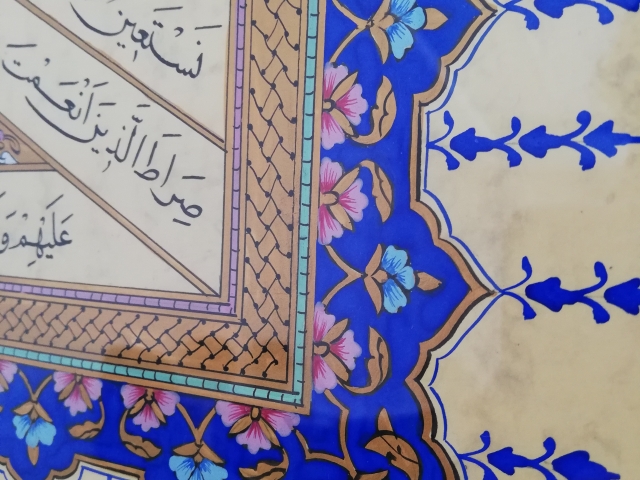 نَسْتَعِينُ
صِرَاطَ الَّذِينَ أَنْعَمْتَ
عَلَيْهِمْ